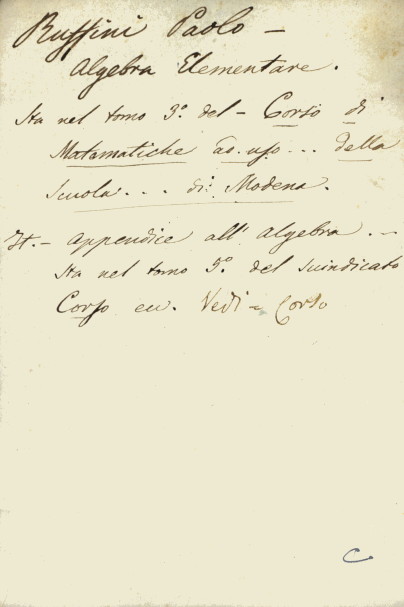 Ruffini Paolo —
Algebra Elementare.
Sta nel tomo 3.° del — Corso di
Matamatiche ad uso... della
Scuola... di Modena.
It. — Appendice all' Algebra. —
Sta nel tomo 5.° del suindicato
Corso ec. Vedi = Corso
C